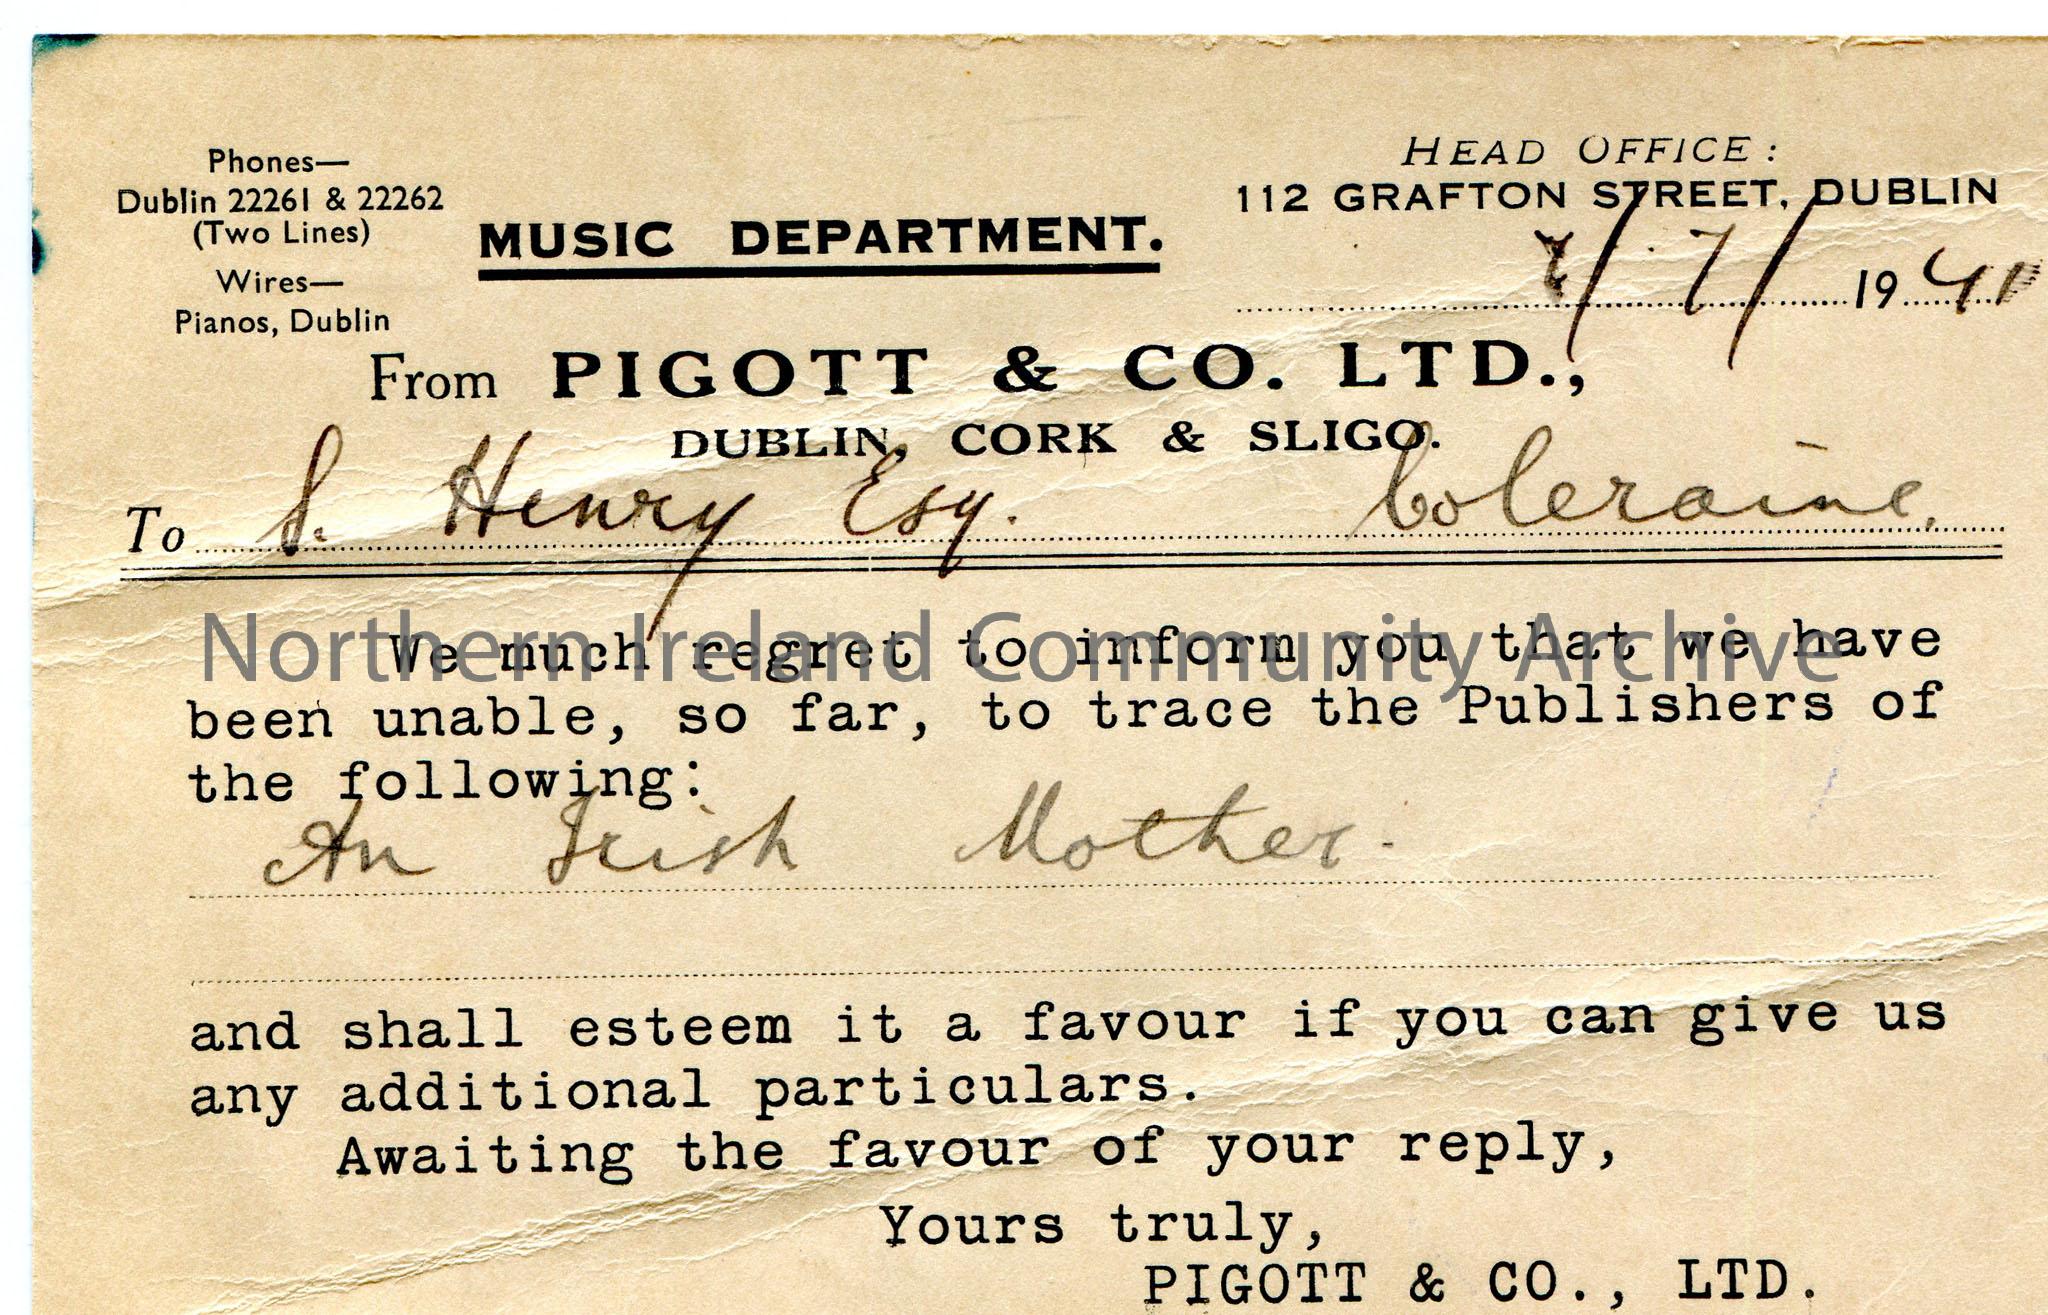 Phones—
Dublin 22261 & 22262
(Two Lines)
Wires—
Pianos, Dublin
MUSIC DEPARTMENT.
HEAD OFFICE:
112 GRAFTON STREET, DUBLIN
/7/ 19 41
From PIGOTT & CO. LTD.,
DUBLIN, CORK & SLIGO.
To S. Henry Esq. Coleraine.
Northern Ireland Community Archive
We much regret to inform you that we have
been unable, so far, to trace the Publishers of
the following:
An Irish Mother.
and shall esteem it a favour if you can give us
any additional particulars.
Awaiting the favour of your reply,
Yours truly,
PIGOTT & CO., LTD.